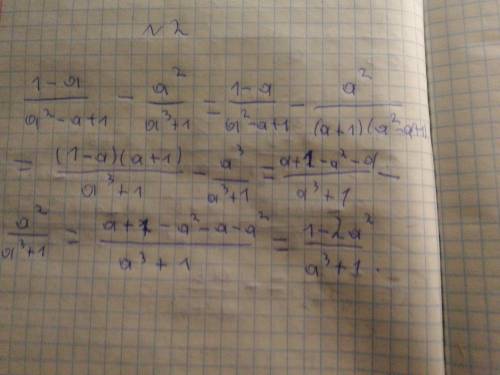 №2
(1-a)/(a²-a+1) - a²/(a³+1) = (1-a)/(a²-a+1) - a²/((a+1)(a²-a+1))
= ((1-a)(a+1))/(a³+1) - a³/(a³+1) = (a+1-a²-a)/(a³+1) -
a²/(a³+1) = (a+1-a²-a-a²)/(a³+1) = (1-2a²)/(a³+1).